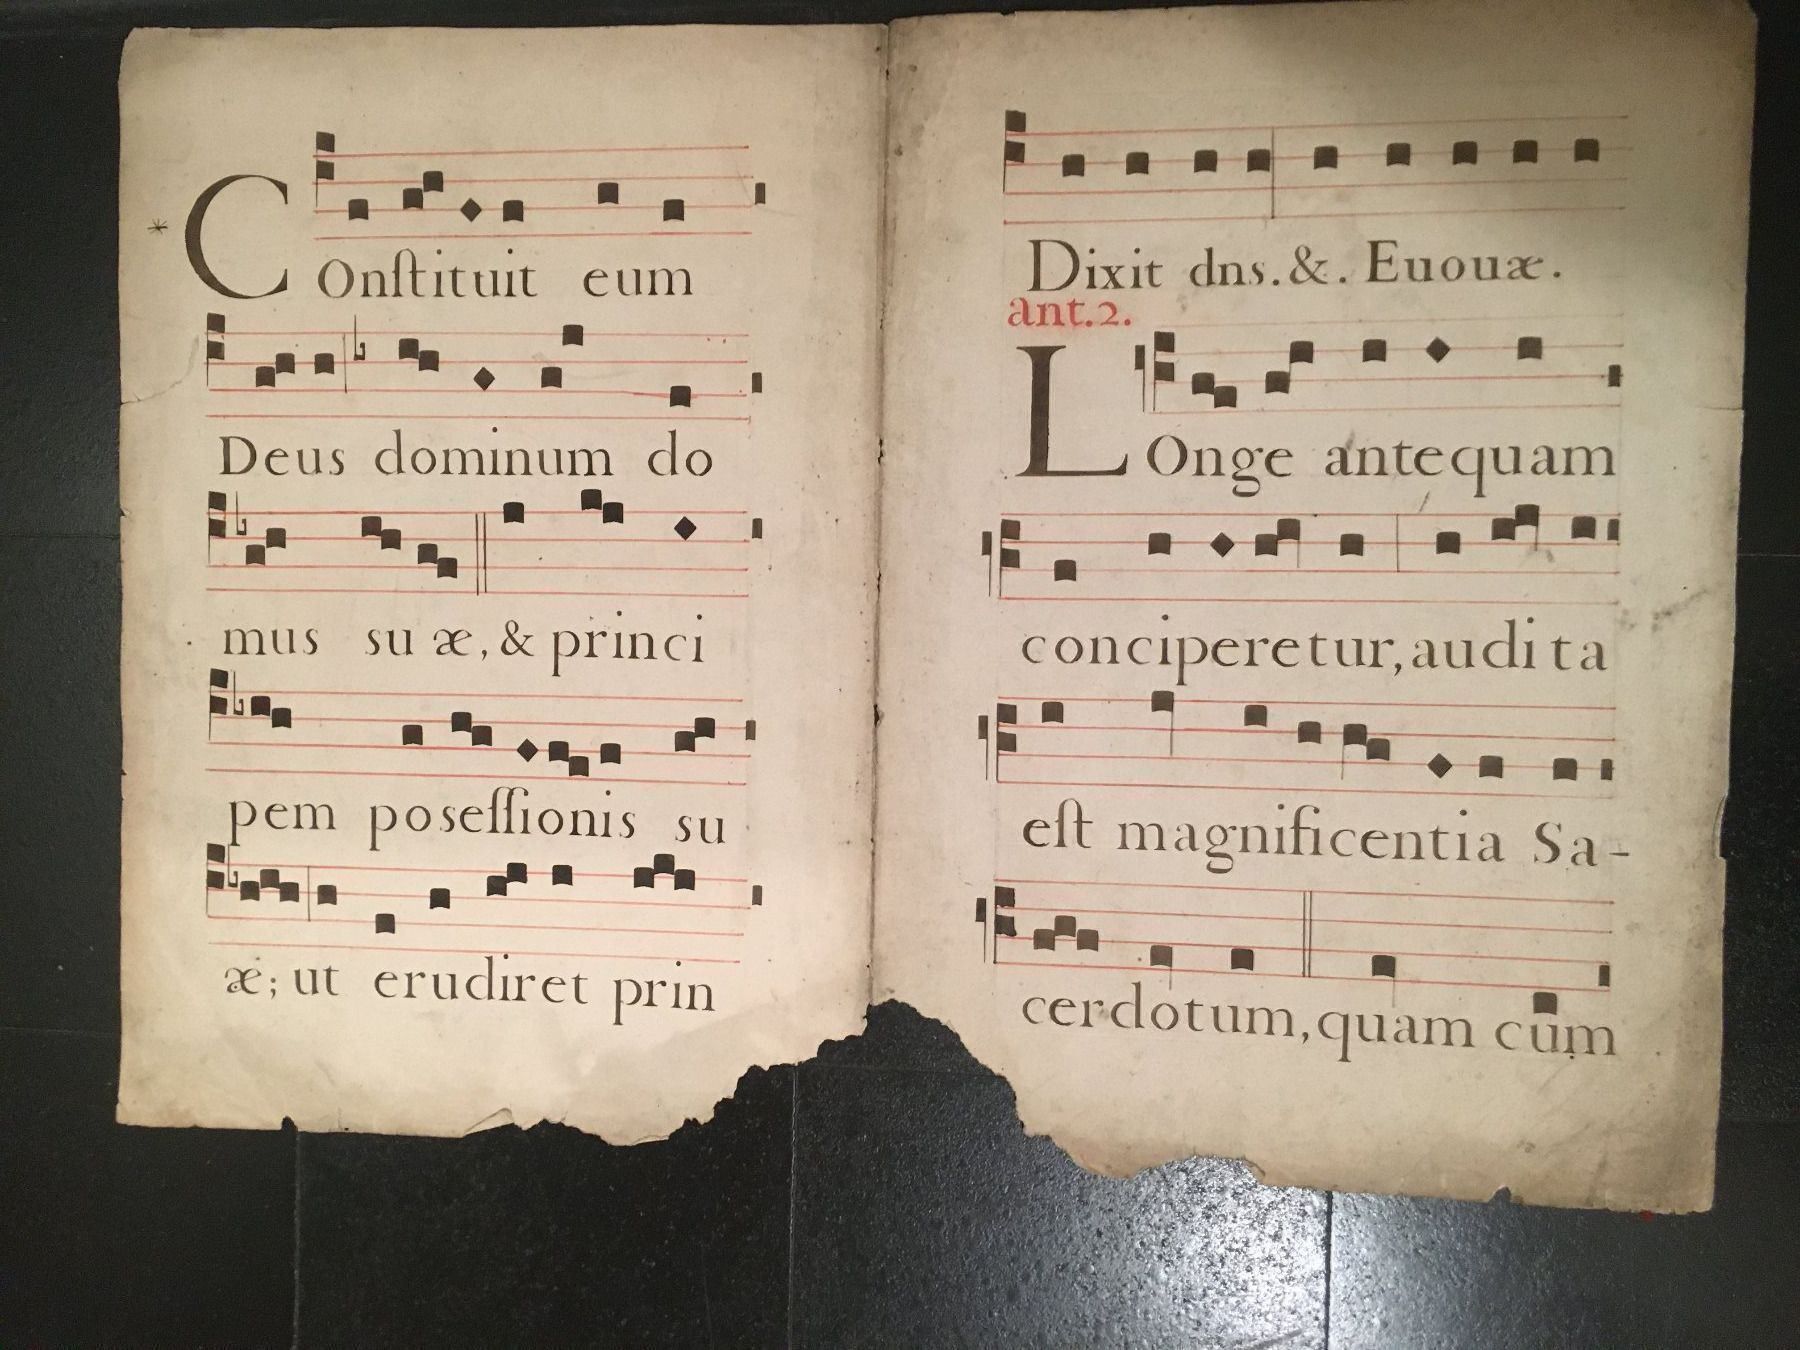 * Conſtituit eum
Deus dominum do
mus suæ, & princi
pem poseſſionis su
æ; ut erudiret prin
Dixit dns. &. Euouæ.
ant. 2.
Longe antequam
conciperetur, audita
eſt magnificentia Sa-
cerdotum, quam cum